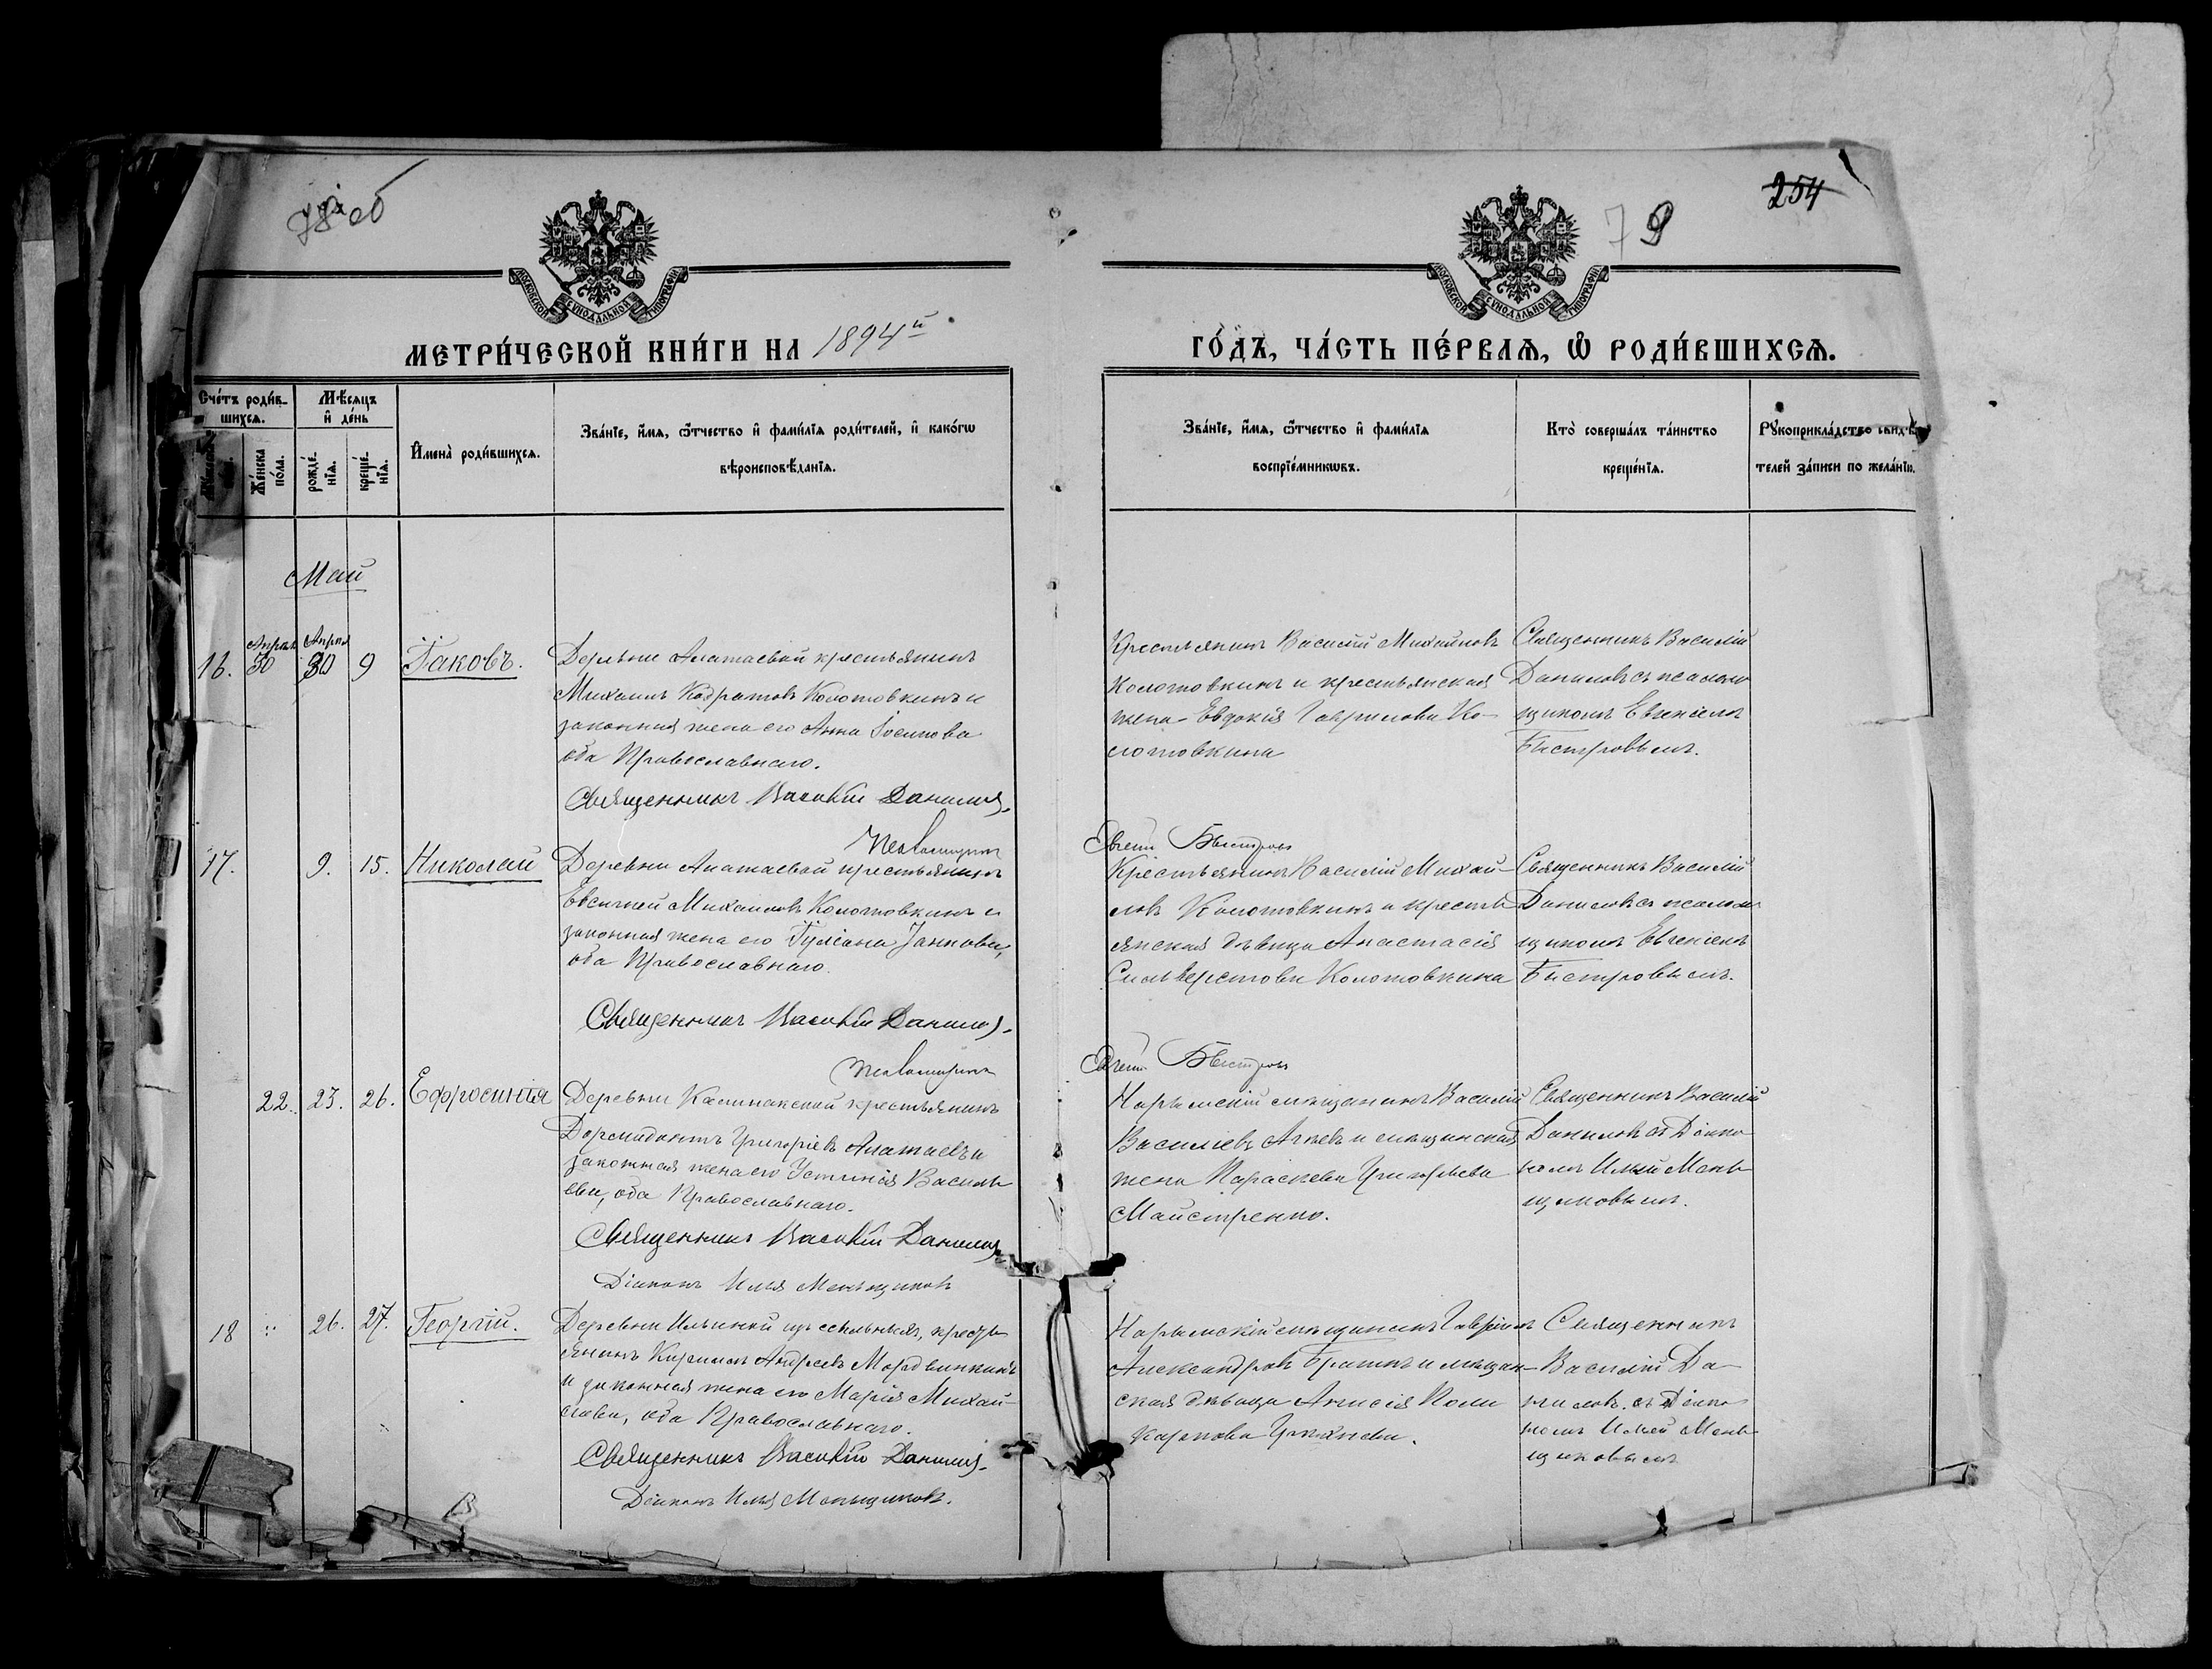 78 об
79
254
МОСКОВСКОЙ СѴНОДАЛЬНОЙ ТИПОГРАФІИ
МОСКОВСКОЙ СѴНОДАЛЬНОЙ ТИПОГРАФІИ
МЕТРИ́ЧЕСКОЙ КНИ́ГИ НА 1894й
ГО́ДЪ, ЧА́СТЬ ПЕ́РВАѦ, Ѽ РОДИ́ВШИХСѦ.
Сче́тъ роди́в-
шихсѧ.
Же́нска по́ла.
Мѣ́сѧцъ
и҆ де́нь
рожде́-
нїѧ.
креще́-
нїѧ.
И҆мена̀ роди́вшихсѧ.
Зва́нїе, и҆́мѧ, ѻ҆́тчество и҆ фами́лїѧ роди́телей, и҆ како́гѡ
вѣроисповѣ́данїѧ.
Зва́нїе, и҆́мѧ, ѻ҆́тчество и҆ фами́лїѧ
воспрїе́мникѡвъ.
Кто̀ соверша́лъ та́инство
креще́нїѧ.
Рꙋкоприкла́дство свидѣ́-
телей за́писи по жела́нїю.
Май
Апрѣл Апрѣл
16. 30 30 9 Іаковъ.
Деревни Алатаевой крестьянинъ
Михаилъ Кодратовъ Колотовкинъ и
законная жена его Анна Іосипова
оба Православнаго.
Священникъ Василій Даниловъ.
Псаломщикъ
Крестьянинъ Василій Михайловъ
Колотовкинъ и крестьянская
жена Евдокія Гаврилова Ко-
лотовкина
Евгеній Быстровъ
Священникъ Василій
Даниловъ съ псаломъ
щикомъ Евгеніемъ
Быстровымъ.
17. 9. 15. Николай
Деревни Алатаевой крестьянинъ
Евсигней Михаиловъ Колотовкинъ и
законная жена его Іуліана
оба Православнаго.
Священникъ Василій Даниловъ.
Псаломщикъ
Крестьянинъ Василій Михай-
ловъ Колотовкинъ и кресть
янская дѣвица Анастасія
Сильверстова Колотовкина
Евгеній Быстровъ
Священникъ Василій
Даниловъ съ псаломъ
щикомъ Евгеніемъ
Быстровымъ.
22. 23. 26. Ефросинія
Деревни Касинакской крестьянинъ
Дормидонтъ Григоріевъ Алатаевъ и
законная жена его Устинія Василь
ева, оба Православнаго.
Священникъ Василій Даниловъ
Діаконъ Илья Меньщиковъ
Нарымскій мѣщанинъ Василій
Василіевъ и мѣщанская
жена Параскева Григорьева
Майстренко.
Священникъ Василій
Даниловъ съ Діако
номъ Ильей Мень
щиковымъ.
18 26. 27. Георгій.
Деревни Ильинки изъ ссыльныхъ, кресть
янинъ Кирилъ Андреевъ Мордвинкинъ
и законная жена его Марія Михай-
лова, оба Православнаго.
Священникъ Василій Даниловъ.
Діаконъ Илья Меньщиковъ.
Нарымскій мѣщанинъ Гавріилъ
Александровъ и мѣщан-
ская дѣвица Анисія Поли
карпова
Священникъ
Василій Да-
ниловъ съ Діако
номъ Ильей Мень
щиковымъ